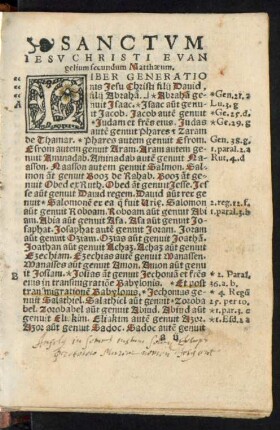 SANCTVM
IESV CHRISTI EVAN
gelium secundum Matthæum.
LIBER GENERATIO
nis Jesu Christi filij David,
filij Abrahã. *Abrahã ge-
nuit Isaac. *Isaac aũt genuit
Jacob. Jacob autẽ genuit
*Judam et frẽs eius. Judas
autẽ genuit phares * Zaram
de Thamar. *phares autem genuit Esrom.
Esrom autem genuit Aram. Aram autem ge-
nuit Aminadab. Aminadab autẽ genuit Na-
asson. Naasson autem genuit Salmon. Sal-
mon aũt genuit Booz de Rahab. Booz aũt ge-
nuit Obed ex Ruth. Obed aũt genuit Jesse. Jes-
se aũt genuit David regem. David aũt rex ge-
nuit *Salomonẽ ex ea q̃ fuit Urię. Salomon
aũt genuit Roboam. Roboam aũt genuit Abi
am. Abia aũt genuit Asa. Asa aũt genuit Jo-
saphat. Josaphat autẽ genuit Joram. Joram
aũt genuit Oziam. Ozias aũt genuit Joathã.
Joathã aũt genuit Achaz. Achaz aũt genuit
Ezechiam. Ezechias autẽ genuit Manassen.
Manasses aũt genuit Amon. Amon aũt genu
it Josiam. *Josias aũt genuit Jechoniã et frẽs
eius in transmigratiõe Babylonis. *Et post
transmigrationẽ Babylonis, *Jechonias ge-
nuit Salathiel. Salathiel aũt genuit *Zoroba
bel. Zorobabel aũt genuit Abiud. Abiud aũt
genuit Eliakim. Eliakim autẽ genuit Azor.
Azor aũt genuit Sadoc. Sadoc autẽ genuit
A
B
*Gen. 21. a
Lu. 3. g
*Ge. 25. d.
*Ge. 29. g
Gen. 38. g.
1. paral. 2. a
Rut. 4. d
2. reg. 12. f.
1. paral. 3. b
*2. Paral.
36. 2. b,
*4. Regũ
25. per to.
*1. Esd. 2. a